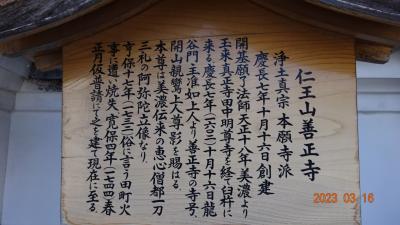 仁王山善正寺
浄土真宗 本願寺派
慶長七年十月十六日創建
開基願了法師天正十八年美濃より
玉来真正寺田中明尊寺を経て臼杵に
来る。慶長七年(一六〇二)十月十六日龍
谷門主准如上人より善正寺の寺号、
開山親鸞上人尊影を賜はる。
本尊は美濃伝来の恵心僧都一刀
三礼の阿弥陀立像なり。
享保十七年(一七三二)俗に言う田町火
事に遭い焼失、寛保四年(一七四四)春
正月仮普請にて之を建て現在に至る。
2023 03 16